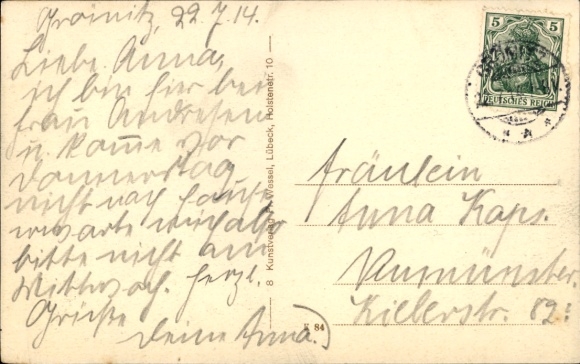 Grömitz, 22.7.14.
Liebe Anna,
ich bin hier bei
Frau Andresen
u. komme vor
Donnerstag
nicht nach Hause
erwarte mich also
bitte nicht am
Mittwoch. Herzl.
Grüße
Deine Anna.
8 Kunstverlag Wessel, Lübeck, Holstenstr. 10
K 84
5 5
DEUTSCHES REICH
Fräulein
Anna Kaps.
Neumünster.
Kielerstr. 82